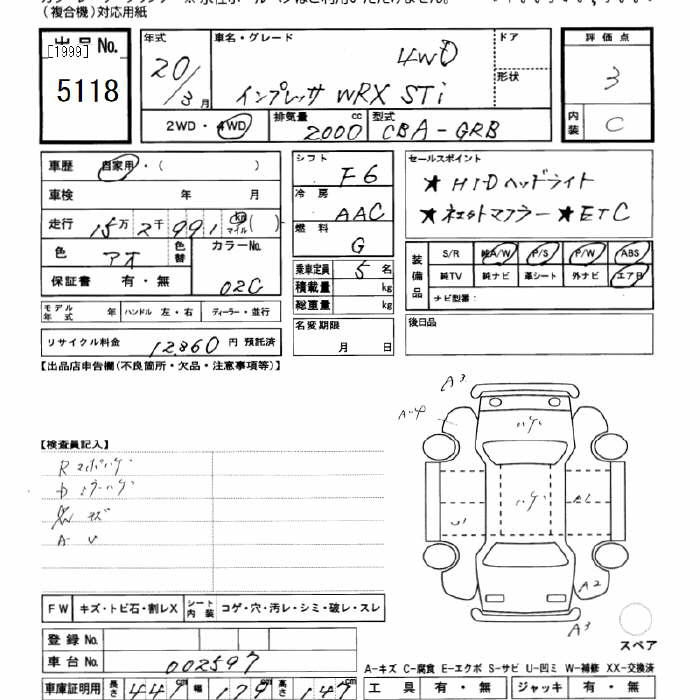 (複合機)対応用紙
出品No.
[1999]
5118
年式
20/3月
車名・グレード
4WD
インプレッサ WRX STi
ドア
形状
2WD・4WD
排気量 2000 cc
型式 CBA-GRB
評価点
3
内装 C
車歴 自家用・( )
車検 年 月
走行 15万2千991 km マイル ( )
色 アオ 色替 カラーNo. 02C
保証書 有・無
モデル年式 年 ハンドル 左・右 ディーラー・並行
リサイクル料金 12,860 円 預託済
シフト F6
冷房 AAC
燃料 G
乗車定員 5 名
積載量 kg
総重量 kg
名変期限
月 日
セールスポイント
★HIDヘッドライト
★ ★ETC
装備品
S/R 純A/W P/S P/W ABS
純TV 純ナビ 革シート 外ナビ エアB
ナビ型番:
後日品
【出品店申告欄(不良箇所・欠品・注意事項等)】
【検査員記入】
A3
A-4
ハゲ
ハゲ
U1
A2
A3
スペア
FW キズ・トビ石・割レX シート内装 コゲ・穴・汚レ・シミ・破レ・スレ
登録No.
車台No. 002597
車庫証明用 長さ 447cm 幅 179cm 高さ 147cm
A-キズ C-腐食 E-エクボ S-サビ U-凹ミ W-補修 XX-交換済
工具 有・無 ジャッキ 有・無